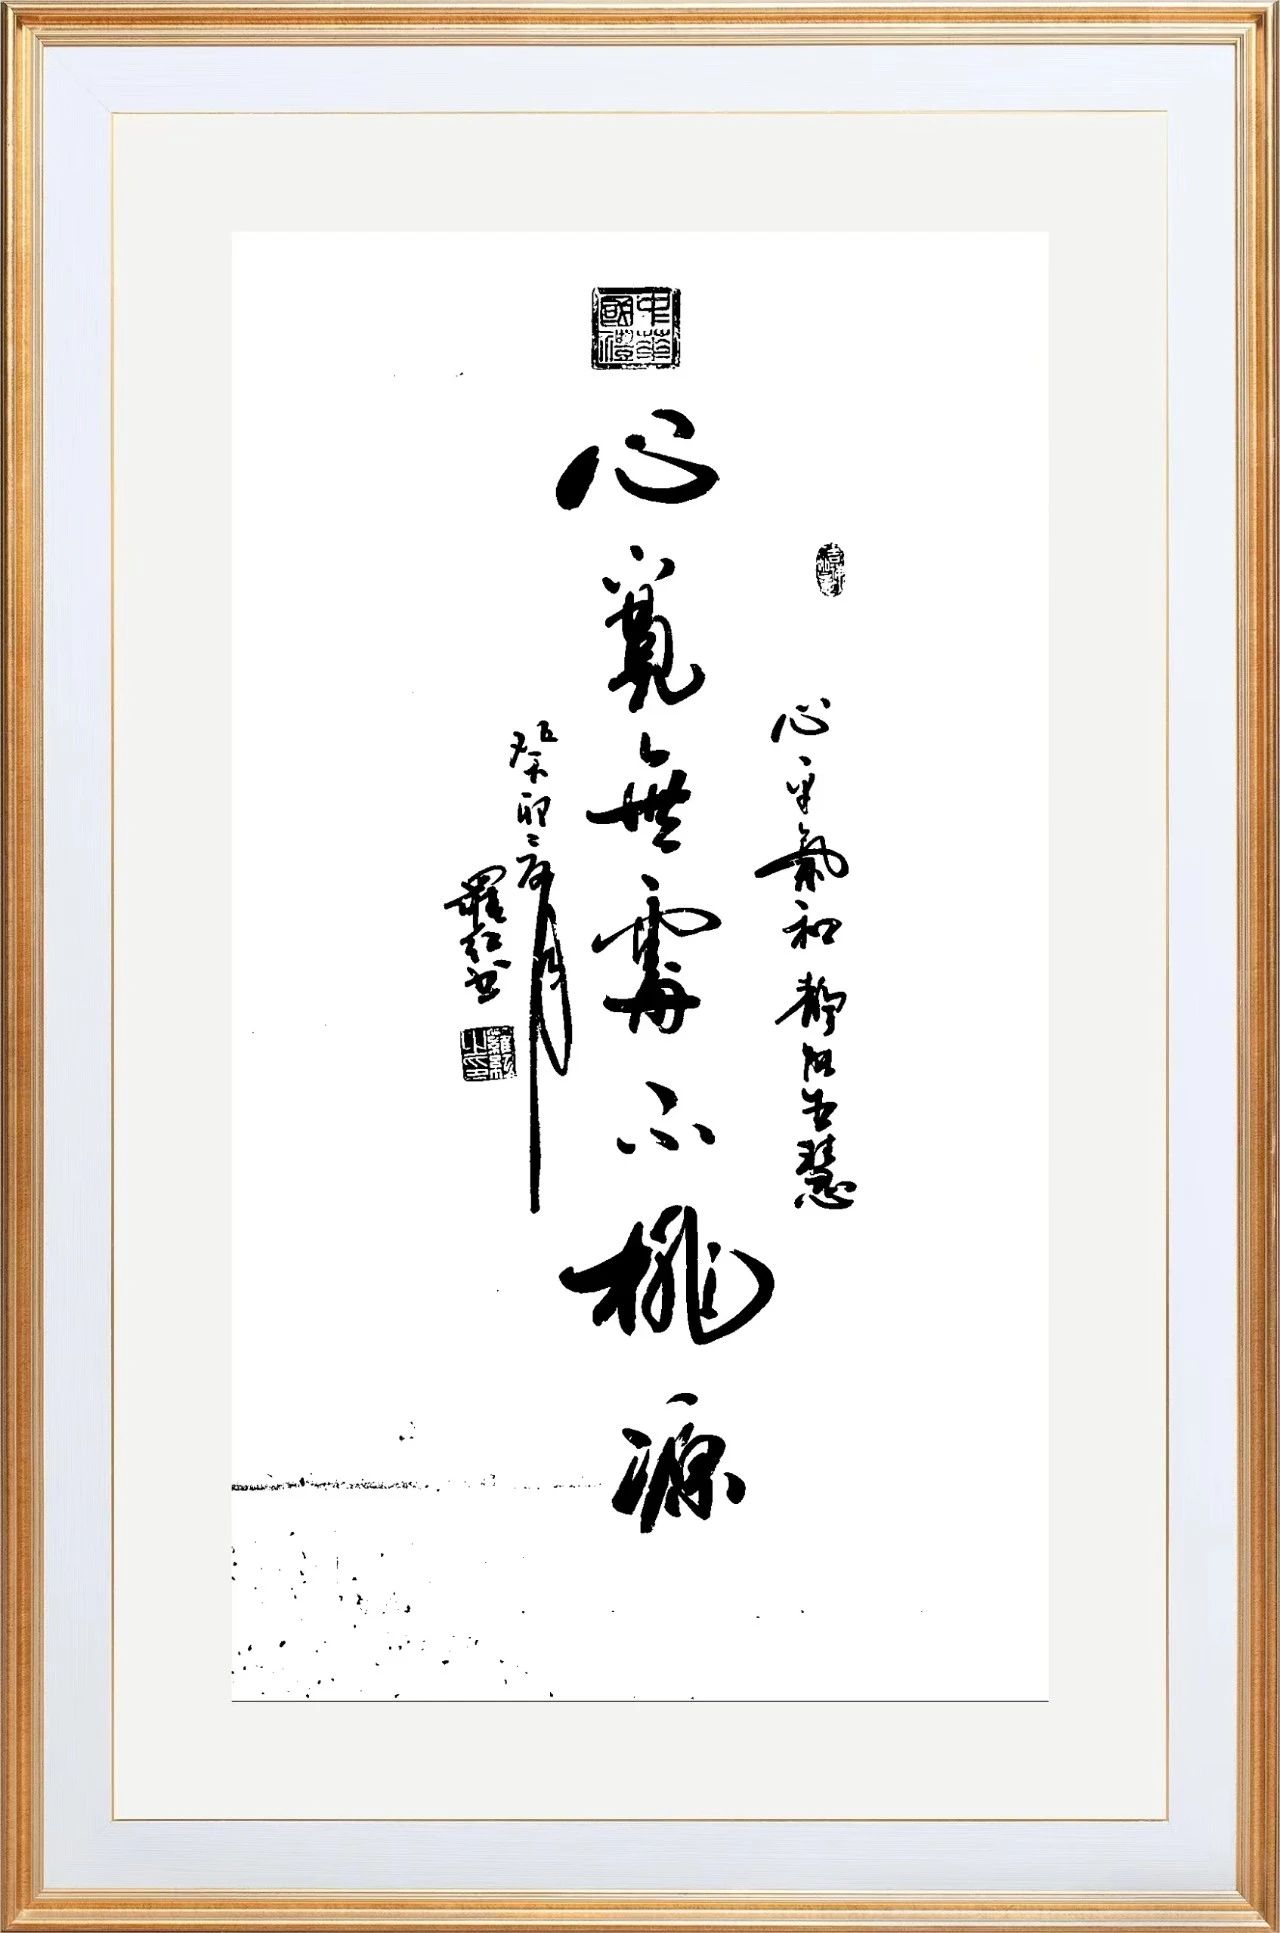 中華國禮
心平氣和 靜能生慧
心寬無處不桃源
癸卯年月
羅紅書
羅紅之印